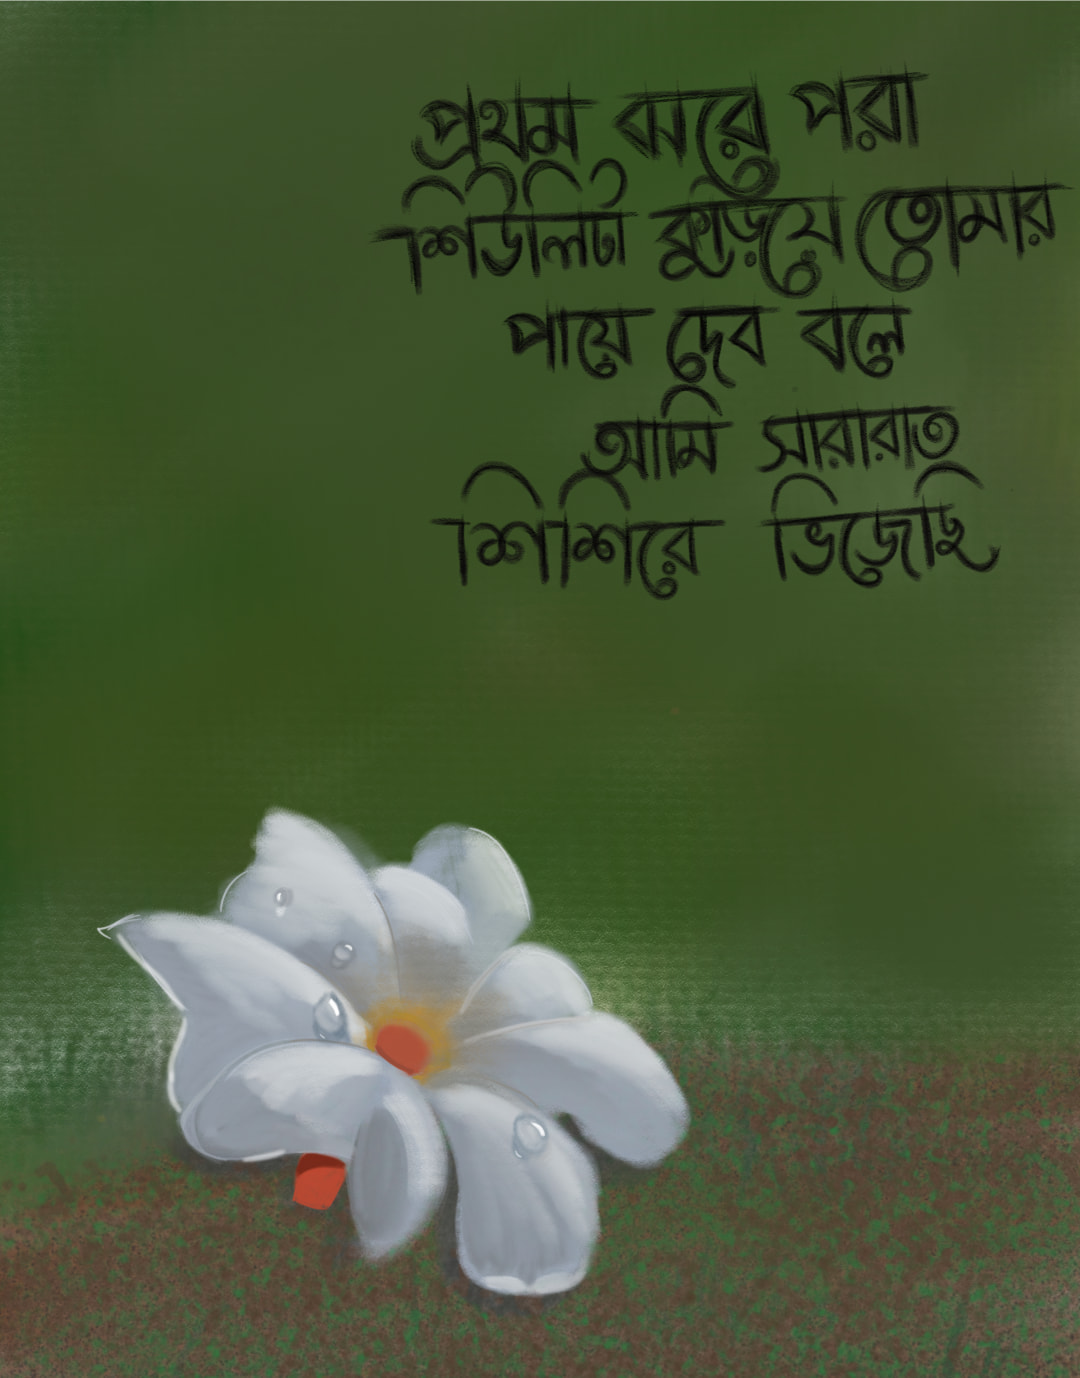 প্রথম ঝরে পরা
শিউলিটা কুড়িয়ে তোমার
পায়ে দেব বলে
আমি সারারাত
শিশিরে ভিজেছি